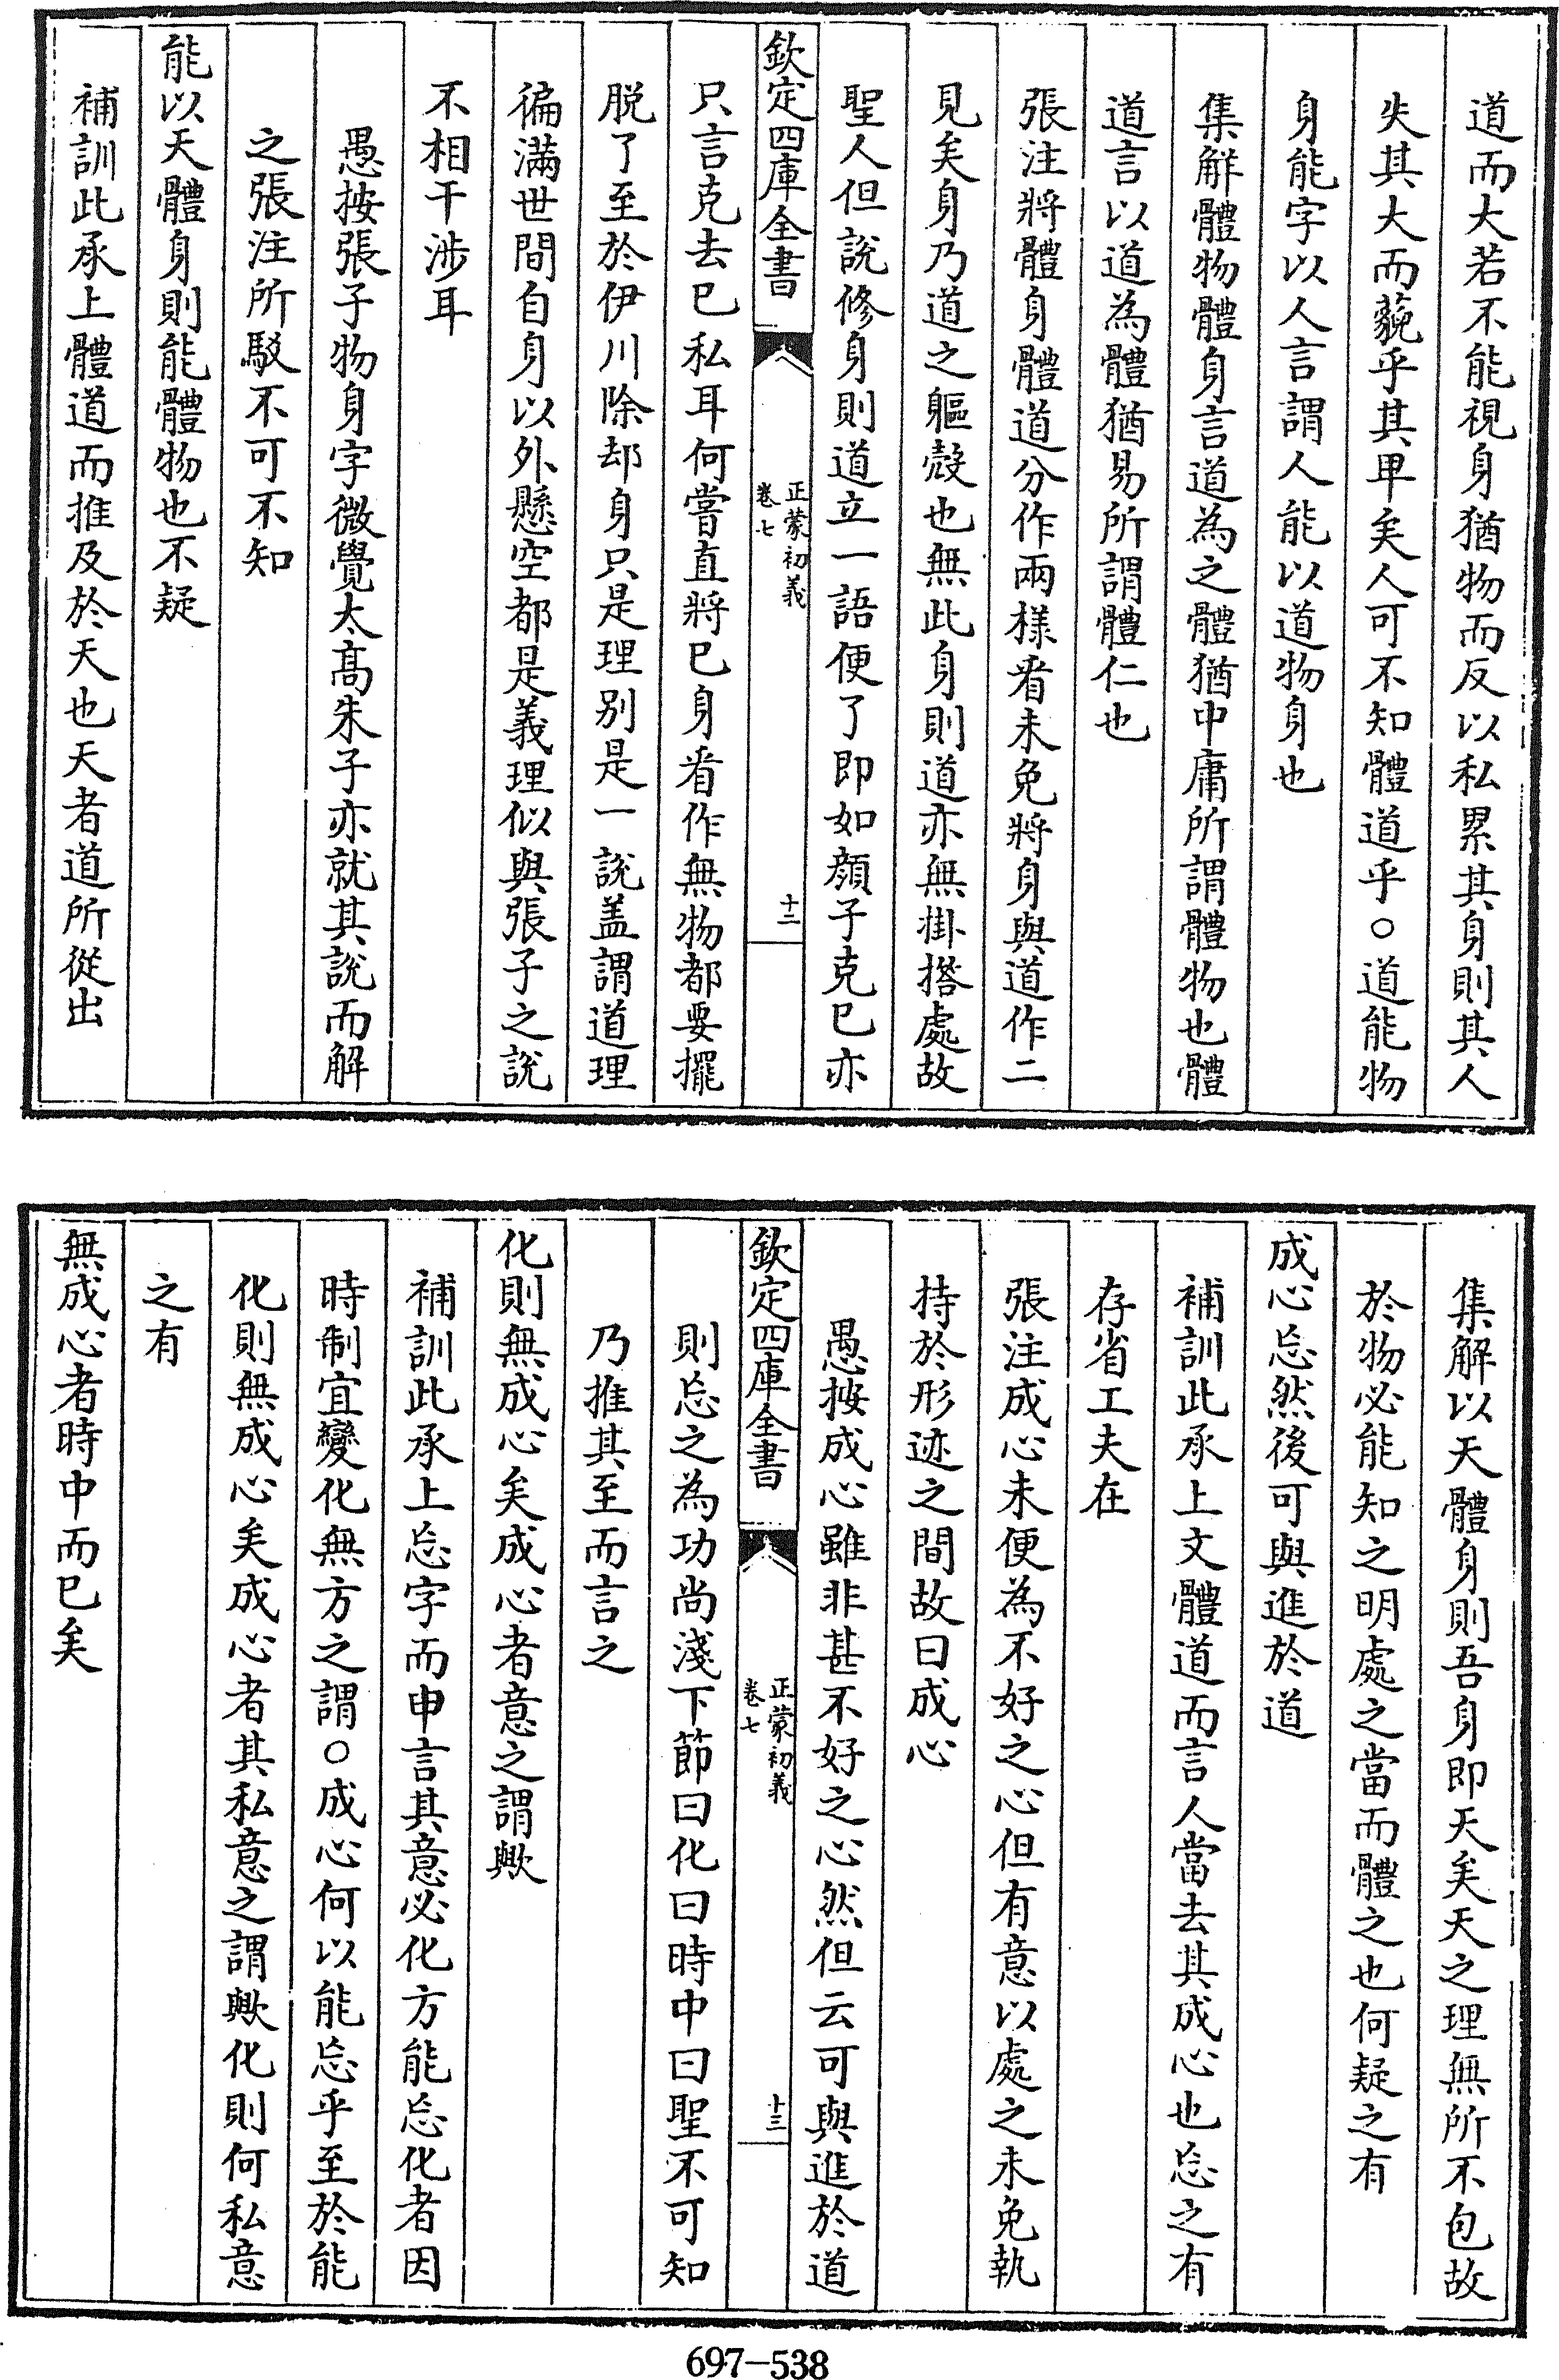 道而大若不能視身猶物而反以私累其身則其人
失其大而藐乎其卑矣人可不知體道乎○道能物
身能字以人言謂人能以道物身也
集解體物體身言道為之體猶中庸所謂體物也體
道言以道為體猶易所謂體仁也
張注將體身體道分作兩樣看未免將身與道作二
見矣身乃道之軀殼也無此身則道亦無掛搭處故
聖人但說修身則道立一語便了即如顏子克已亦
欽定四庫全書
正蒙初義
卷七
十二
只言克去已私耳何嘗直將已身看作無物都要擺
脫了至於伊川除却身只是理别是一說盖謂道理
徧滿世間自身以外懸空都是義理似與張子之說
不相干涉耳
愚按張子物身字微覺太高朱子亦就其說而解
之張注所駁不可不知
能以天體身則能體物也不疑
補訓此承上體道而推及於天也天者道所從出
集解以天體身則吾身即天矣天之理無所不包故
於物必能知之明處之當而體之也何疑之有
成心忘然後可與進於道
補訓此承上文體道而言人當去其成心也忘之有
存省工夫在
張注成心未便為不好之心但有意以處之未免執
持於形迹之間故曰成心
愚按成心雖非甚不好之心然但云可與進於道
欽定四庫全書
正蒙初義
卷七
十三
則忘之為功尚淺下節曰化曰時中曰聖不可知
乃推其至而言之
化則無成心矣成心者意之謂歟
補訓此承上忘字而申言其意必化方能忘化者因
時制宜變化無方之謂○成心何以能忘乎至於能
化則無成心矣成心者其私意之謂歟化則何私意
之有
無成心者時中而已矣
697-538